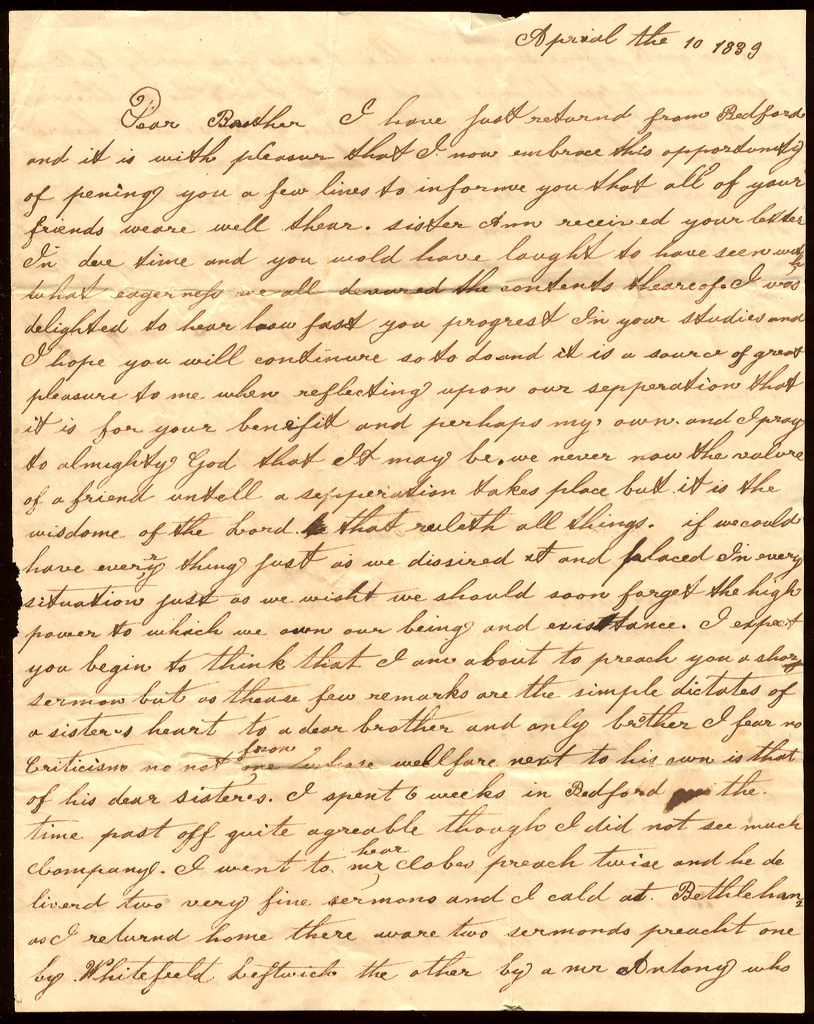 Aprial the 10 1839
Dear Brother I have just returnd from Bedford
and it is with pleasur that I now embrace this opportunity
of pening you a few lines to informe you that all of your
friends weare well thear. sister Ann received your letter
In due time and you wold have laught to have seen with
what eagerness we all devured the contents theareof. I was
delighted to hear how fast you progrest In your studies and
I hope you will continure so to do and it is a source of great
pleasure to me when reflecting upon our sepperation that
it is for your benifit and perhaps my own. and I pray
to almighty God that It may be. we never now the valure
of a friend untell a sepperation takes place but it is the
wisdome of the Lord that ruleth all things. if we could
have every thing just as we dissired it and placed In every
situation just as we wisht we should soon forget the high
power to which we own our being and existance. I expect
you begin to think that I am about to preach you a short
sermon but as thease few remarks are the simple dictates of
a sister's heart to a dear brother and only brother I fear no
Criticism no not from
one whose wellfare next to his own is that
of his dear sisters. I spent 6 weeks in Bedford the
time past off quite agreable though I did not see much
Company. I went to hear
mr Clabes preach twise and he de
liverd two very fine sermons and I cald at Bethleham
as I returnd home there ware two sermonds preacht one
by Whitefeeld Leftwich the other by a mr Antony who